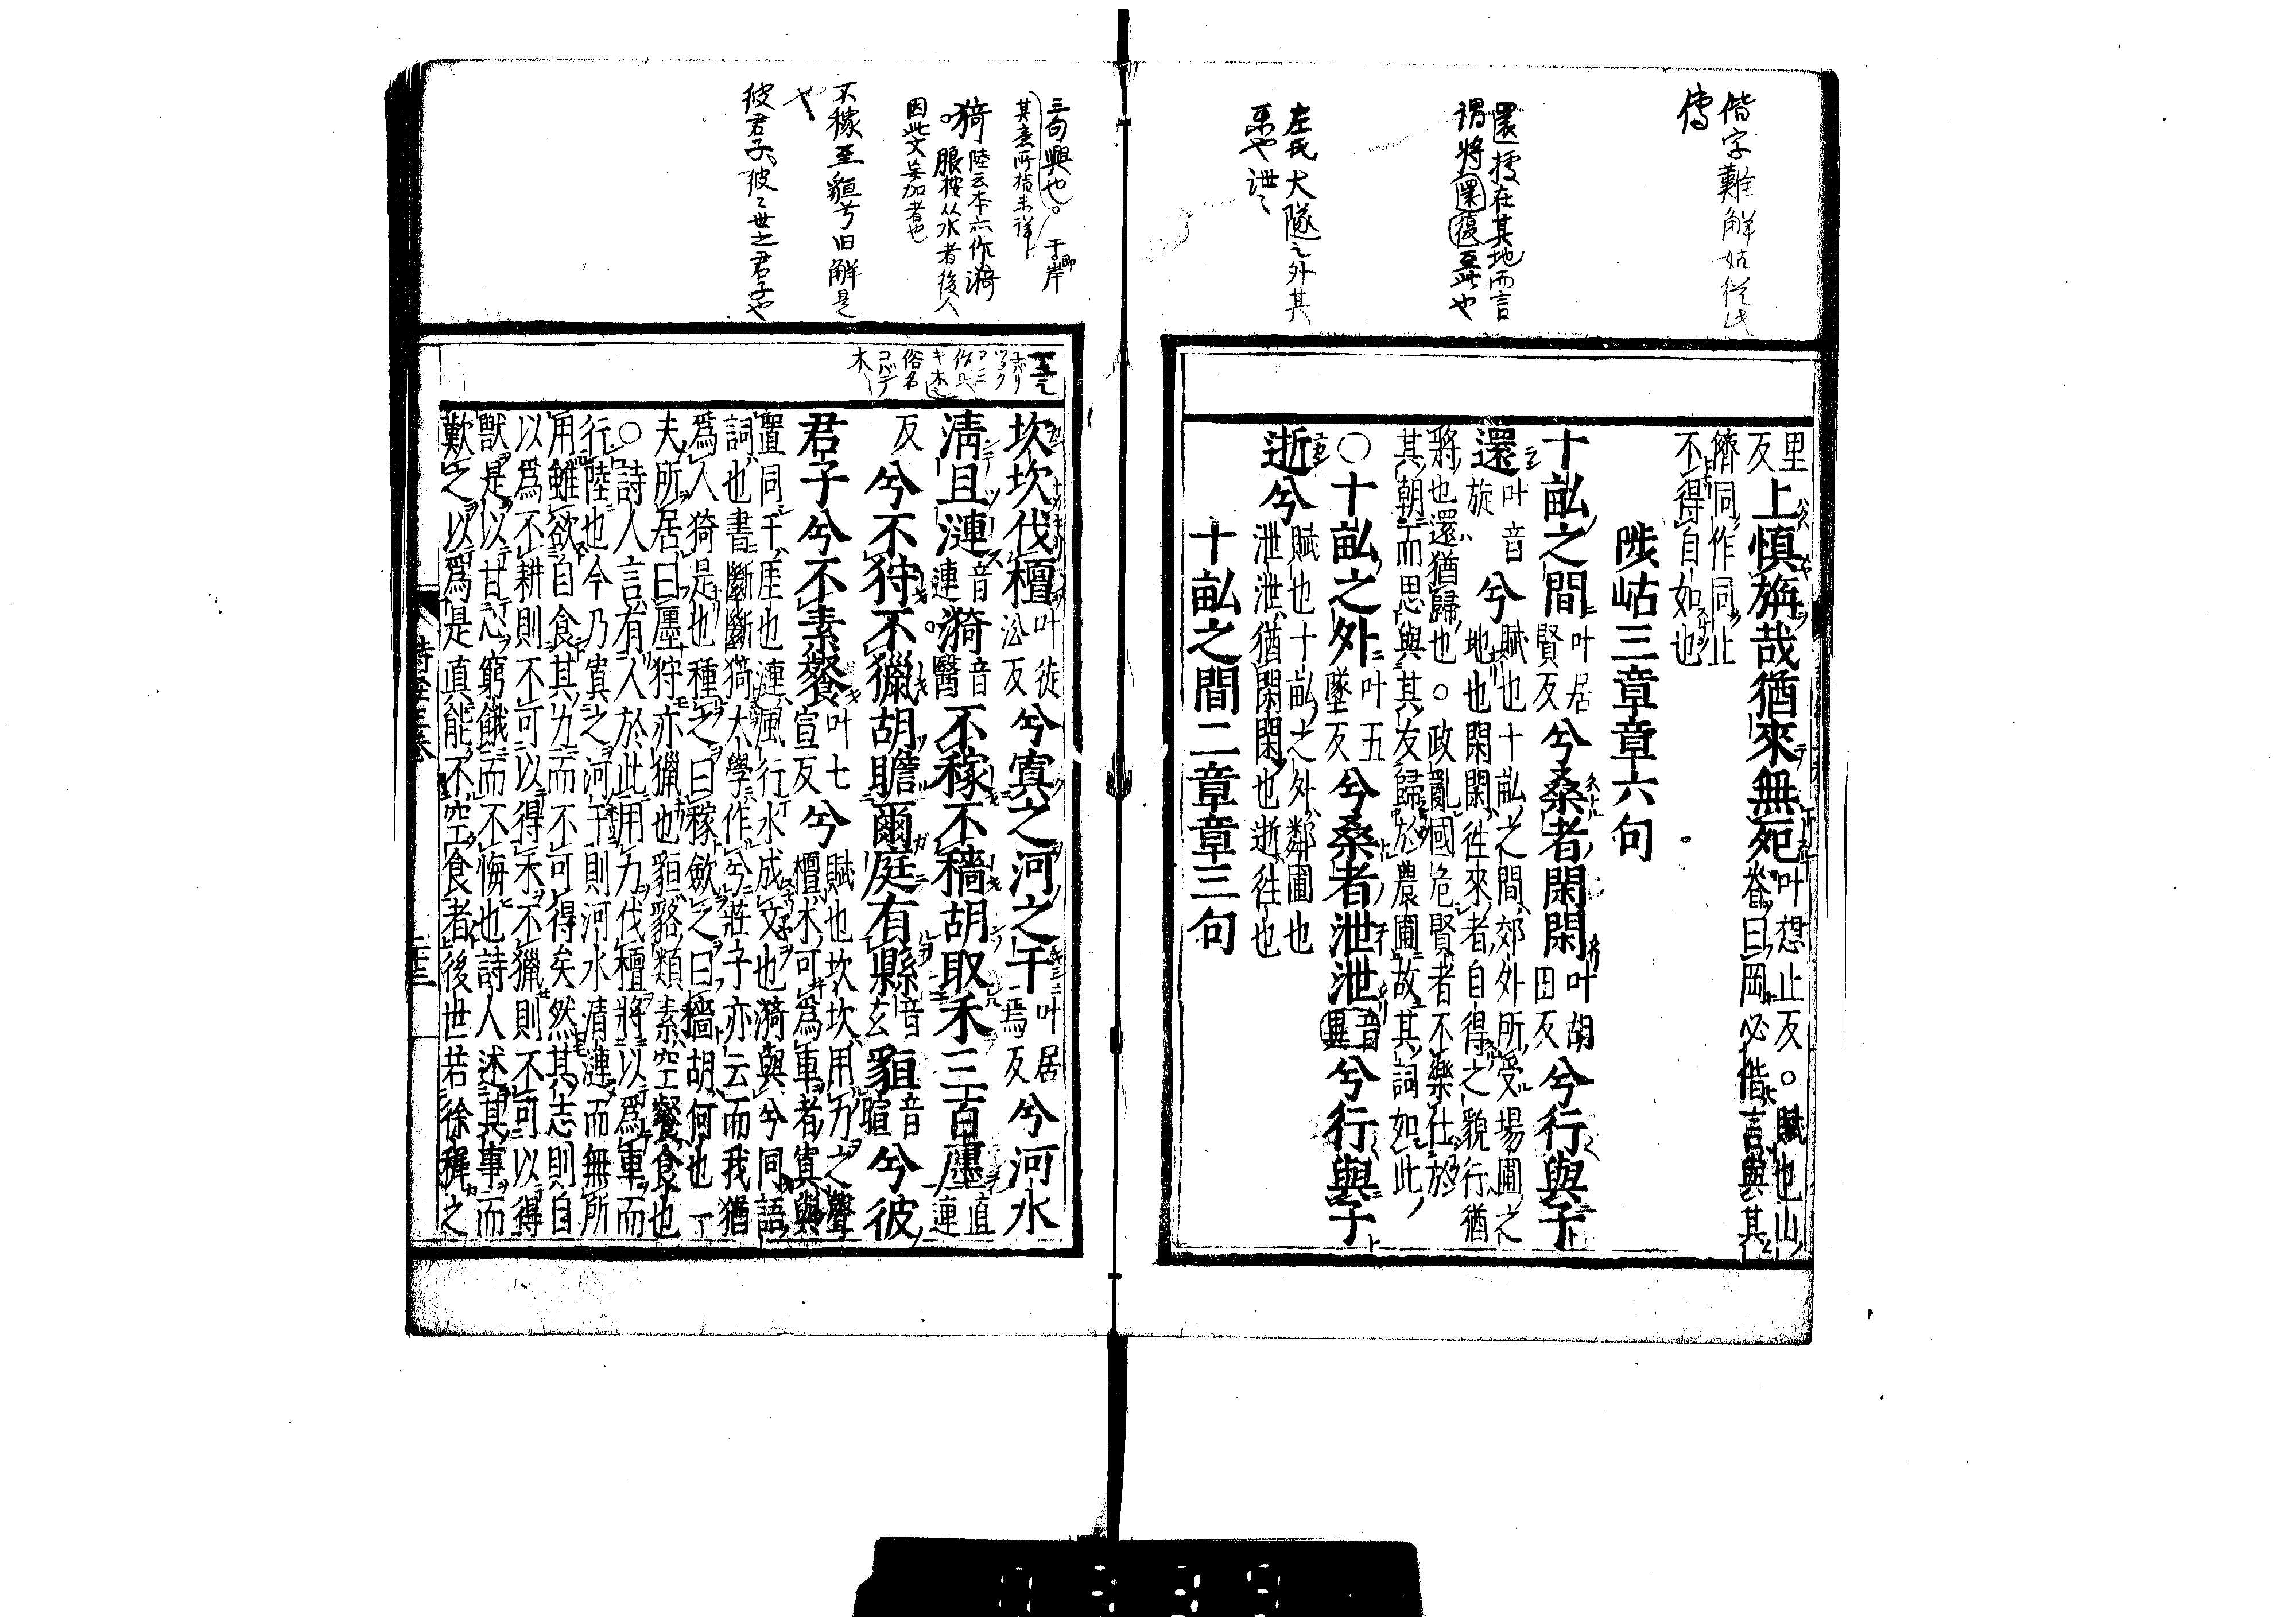 偕字難解姑從此
傳
還援在其地而言
謂將還復至此也
左氏大隧之外其
樂也泄〻
里上慎旃哉猶來無死叶想止反○賦也山
反眷曰岡必偕言與其
儕同作同止
不得自如也
陟岵三章章六句
十畝之間叶居賢反兮桑者閑閑叶胡田反兮行與子
還叶音旋兮賦也十畝之間郊外所受場圃之
地也閑閑往來者自得之貌行猶
將也還猶歸也○政亂國危賢者不樂仕於
其朝而思與其友歸於農圃故其詞如此
○十畝之外叶五墜反兮桑者泄泄音異兮行與子
逝兮賦也十畝之外鄰圃也
泄泄猶閑閑也逝往也
十畝之間二章章三句
三句興也。于岸即
其意所指未詳
猗陸云本亦作漪
服按从水者後人
因此文妄加者也
不稼至貆兮旧解是
也
彼君子彼〻世之君子也
坎坎伐檀叶徒沿反兮寘之河之干叶居焉反兮河水
清且漣音連漪音醫不稼不穡胡取禾三百廛直連
反兮不狩不獵胡瞻爾庭有縣音玄貆音暄兮彼
君子兮不素餐叶七宣反兮賦也坎坎用力之聲
檀木可爲車者寘與
置同干厓也漣風行水成文也漪與兮同語
詞也書斷斷猗大學作兮莊子亦云而我猶
爲人猗是也種之曰稼斂之曰穡胡何也一
夫所居曰廛狩亦獵也貆貉類素空餐食也
○詩人言有人於此用力伐檀將以爲車而
行陸也今乃寘之河干則河水清漣而無所
用雖欲自食其力而不可得矣然其志則自
以爲不耕則不可以得禾不獵則不可以得
獸是以甘心窮餓而不悔也詩人述其事而
歎之以爲是真能不空食者後世若徐穉之